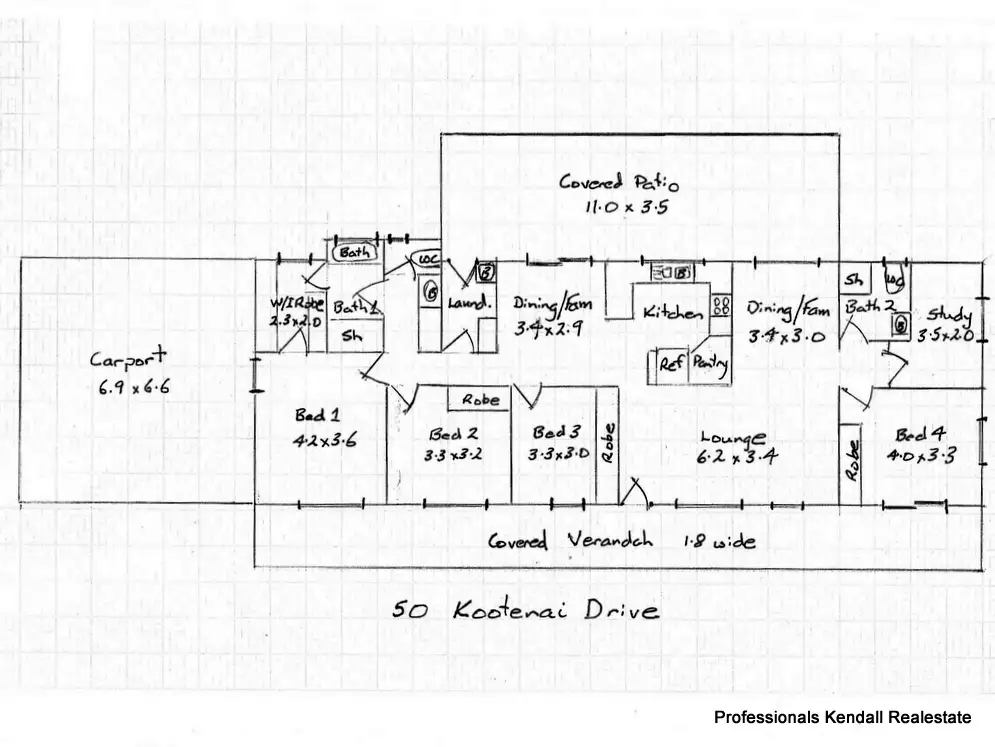 Covered Patio
11.0 x 3.5
Bath
WC
W/I Robe
2.3x2.0
Bath 1
Sh
B
Laund.
B
Dining/Fam
3.4x2.9
B
Kitchen
Ref
Pantry
Dining/Fam
3.4x3.0
Sh
WC
Bath 2
B
Study
3.5x2.0
Carport
6.9 x 6.6
Bed 1
4.2x3.6
Robe
Bed 2
3.3x3.2
Bed 3
3.3x3.0
Robe
Lounge
6.2 x 3.4
Robe
Bed 4
4.0x3.3
Covered Verandah 1.8 wide
50 Kootenai Drive
Professionals Kendall Realestate